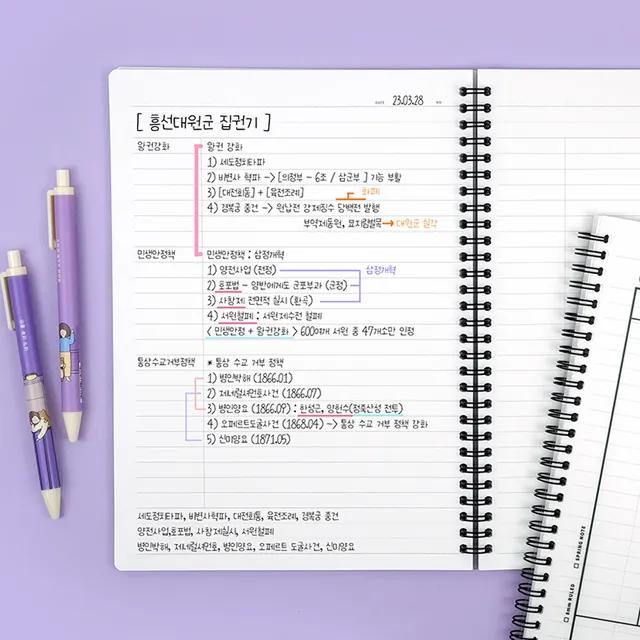 23.03.28
[ 흥선대원군 집권기 ]
왕권강화
왕권 강화
1) 세도정치타파
2) 비변사 혁파 -> [의정부 - 6조 / 삼군부 ] 기능 부활
3) [대전회통] + [육전조례]
화폐
4) 경복궁 중건 -> 원납전 강제징수 당백전 발행
부역제동원, 묘지림벌목 → 대원군 실각
민생안정책
민생안정책 : 삼정개혁
1) 양전사업 (전정)
삼정개혁
2) 호포법 - 양반에게도 군포부과 (군정)
3) 사창제 전면적 실시 (환곡)
4) 서원철폐 : 서원제수전 철폐
< 민생안정 + 왕권강화 > 600여개 서원 중 47개소만 인정
통상수교거부정책
* 통상 수교 거부 정책
1) 병인박해 (1866.01)
2) 제네럴셔먼호사건 (1866.07)
3) 병인양요 (1866.09) : 한성근, 양헌수(정족산성 전투)
4) 오페르트도굴사건 (1868.04) -> 통상 수교 거부 정책 강화
5) 신미양요 (1871.05)
세도정치타파, 비변사혁파, 대전회통, 육전조례, 경복궁 중건
양전사업,호포법, 사창제실시, 서원철폐
병인박해, 제네럴셔먼호, 병인양요, 오페르트 도굴사건, 신미양요
SPRING NOTE
8mm RULED